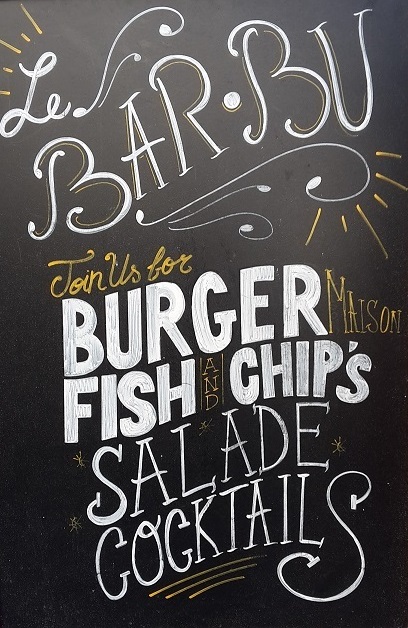 Le
BAR•BU
Join Us for
BURGER MAISON
FISH AND CHIP'S
SALADE
COCKTAILS